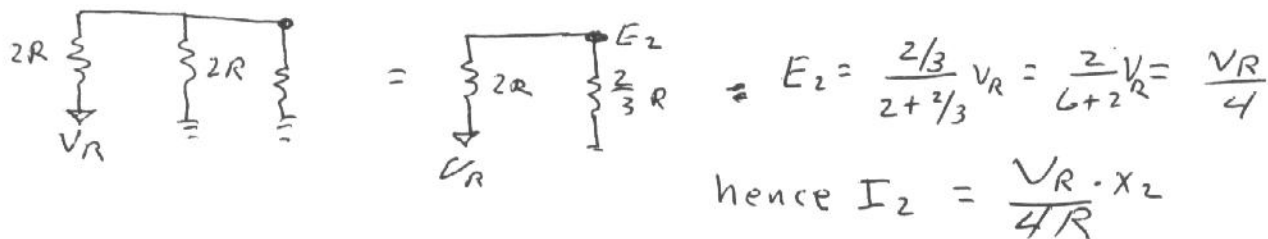 2R 2R = 2R 2/3 R E₂ = E₂ = (2/3)/(2+2/3) V_R = 2/(6+2) V_R = V_R/4
V_R V_R
hence I₂ = V_R/4R · X₂